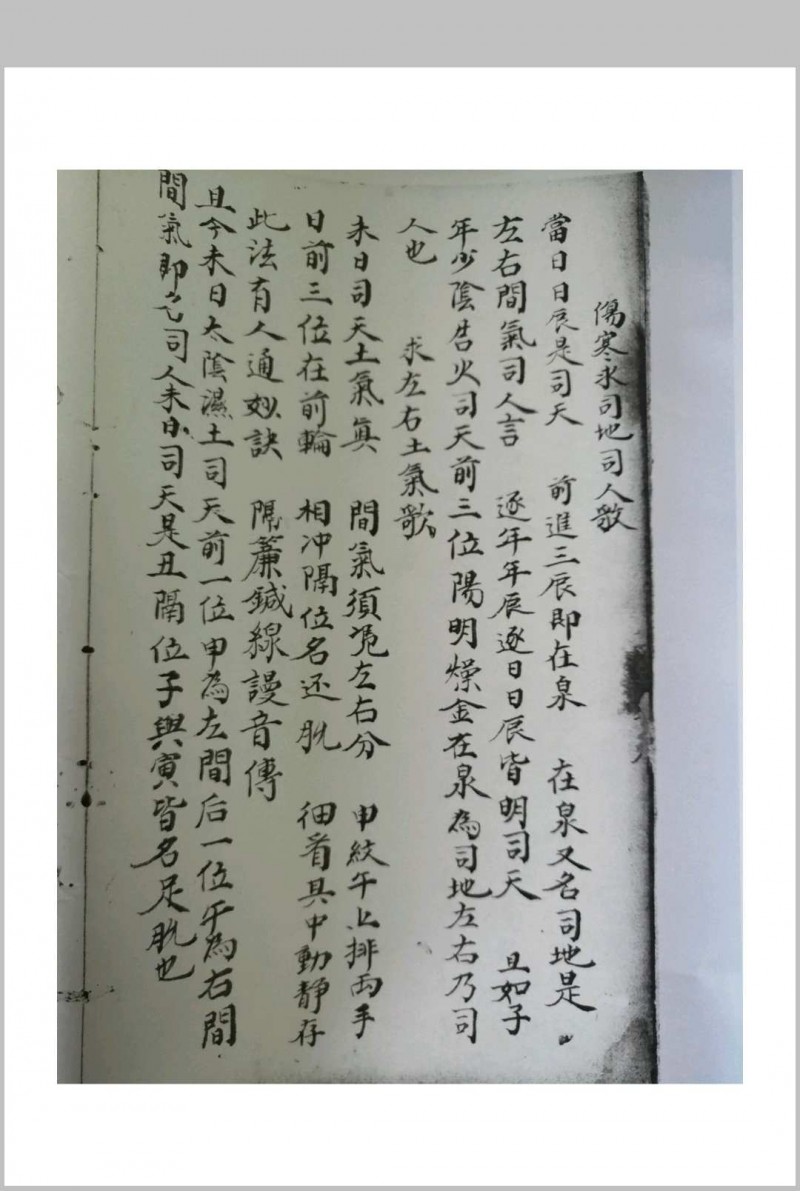 傷寒求司地司人歌
當日日辰是司天　前進三辰即在泉　在泉又名司地是
左右間氣司人言　逐年年辰逐日日辰皆明司天　且如子
年少陰告火司天前三位陽明燥金在泉為司地左右乃司
人也　求左右土氣歌
未日司天土氣真　間氣須凭左右分　申紋午上排両手
日前三位在前輪　相冲隔位名还肬　細看其中動靜存
此法有人通妙訣　隔簾鍼線謾音傳
且今未日太陰濕土司天前一位申為左間后一位午為右間
間氣即是司人未日司天是丑隔位子與寅皆名足肬也